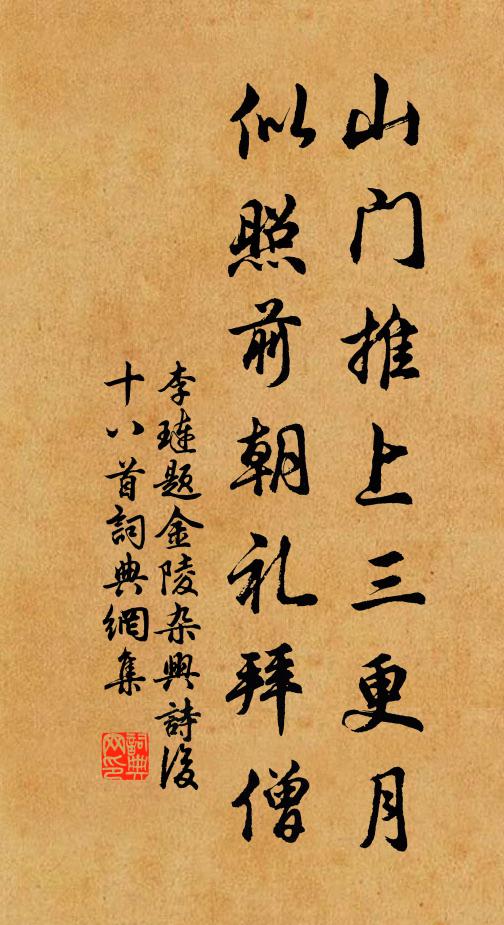 山门推上三更月
似照前朝礼拜僧
李琏题金陵杂兴詩後
十八首詞典網集
詞典网印